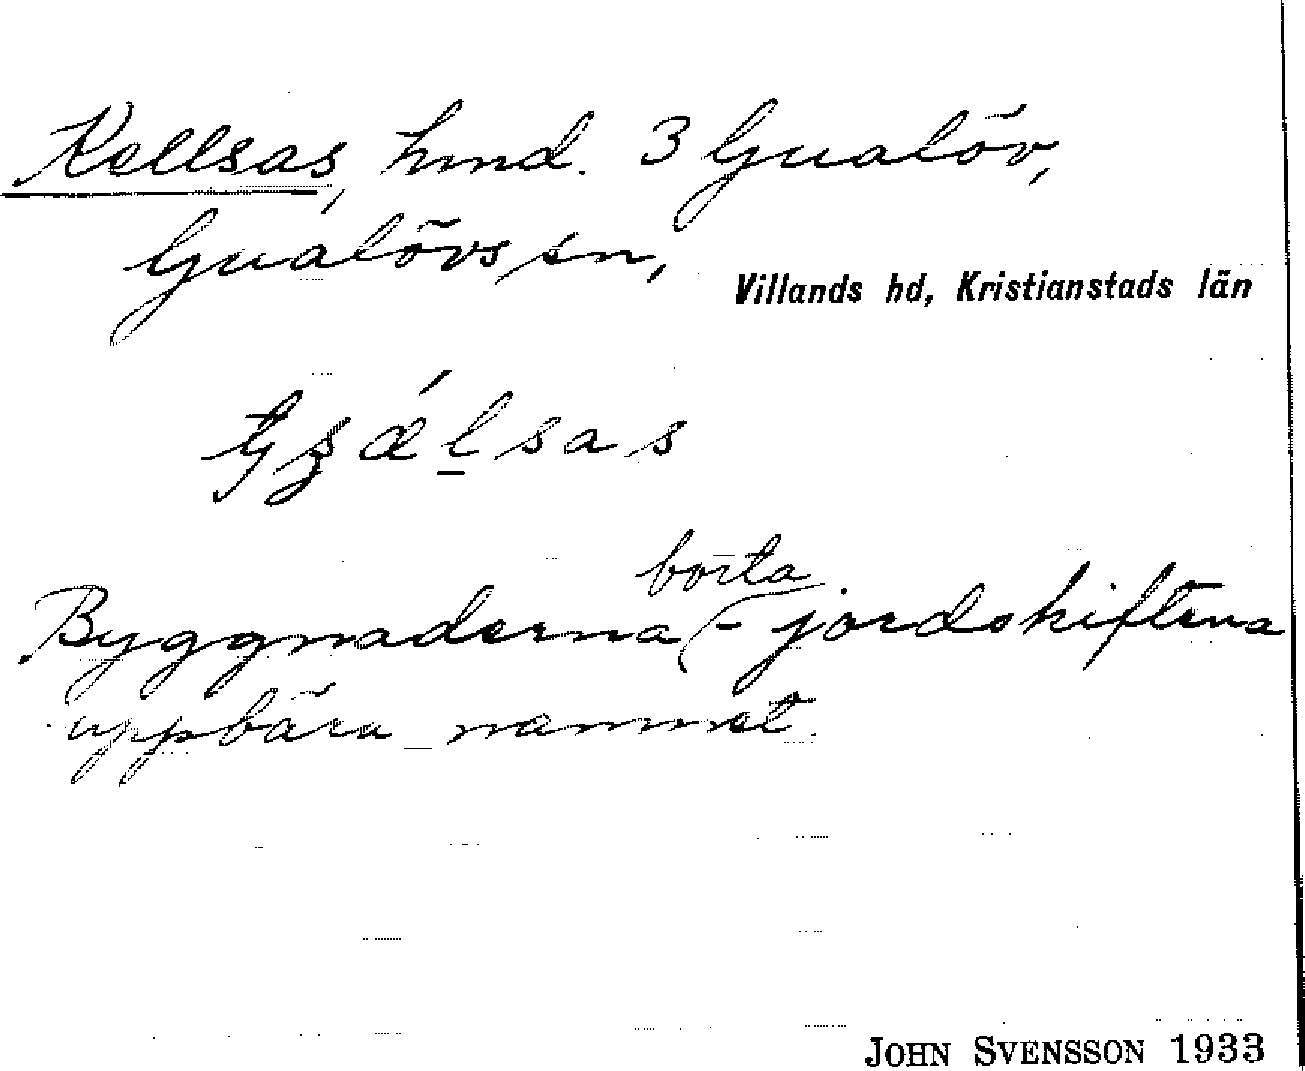 Kellsas, hmd. 3 Gualöv,
Gualövs sn,
Villands hd, Kristianstads län
borta
Byggnaderna - jordskiftena
uppbära namnet.
JOHN SVENSSON 1933